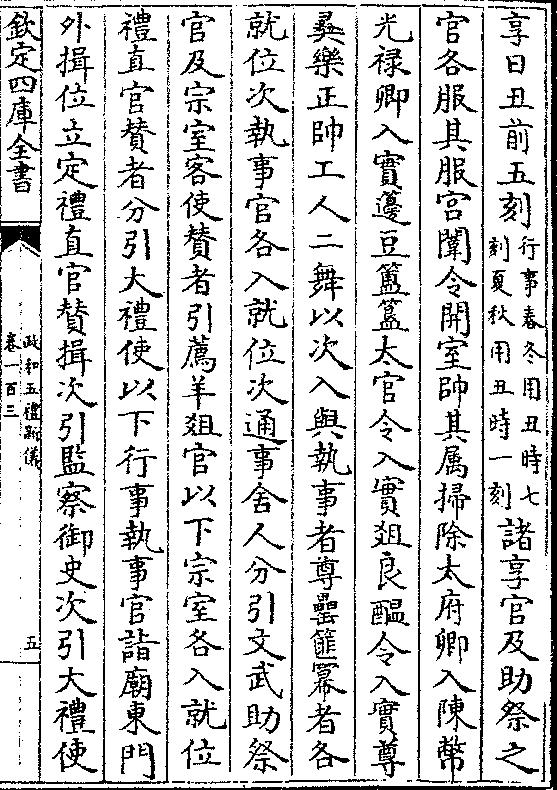 享日丑前五刻行事春冬用丑時七刻夏秋用丑時一刻諸享官及助祭之
官各服其服宮闈令開室帥其属掃除太府卿入陳幣
光禄卿入實籩豆簠簋太官令入實俎良醖令入實尊
彝樂正帥工人二舞以次入與執事者尊罍篚羃者各
就位次執事官各入就位次通事舍人分引文武助祭
官及宗室客使賛者引薦羊俎官以下宗室各入就位
禮直官賛者分引大禮使以下行事執事官詣廟東門
外揖位立定禮直官賛揖次引監察御史次引大禮使
欽定四庫全書
政和五禮新儀
卷一百三
五